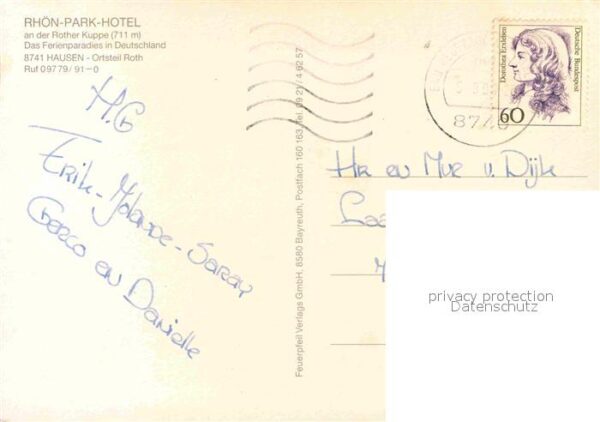 RHÖN-PARK-HOTEL
an der Rother Kuppe (711 m)
Das Ferienparadies in Deutschland
8741 HAUSEN - Ortsteil Roth
Ruf 09779 / 91-0
H.G
Erik-Yolande-Saray
Gerco en Danielle
Feuerpfeil Verlags GmbH, 8580 Bayreuth, Postfach 160 163, Tel. 09 21 / 4 62 57
Dorothea Erxleben
Deutsche Bundespost
60
874
Hr en Mvr v. Dijk
privacy protection
Datenschutz